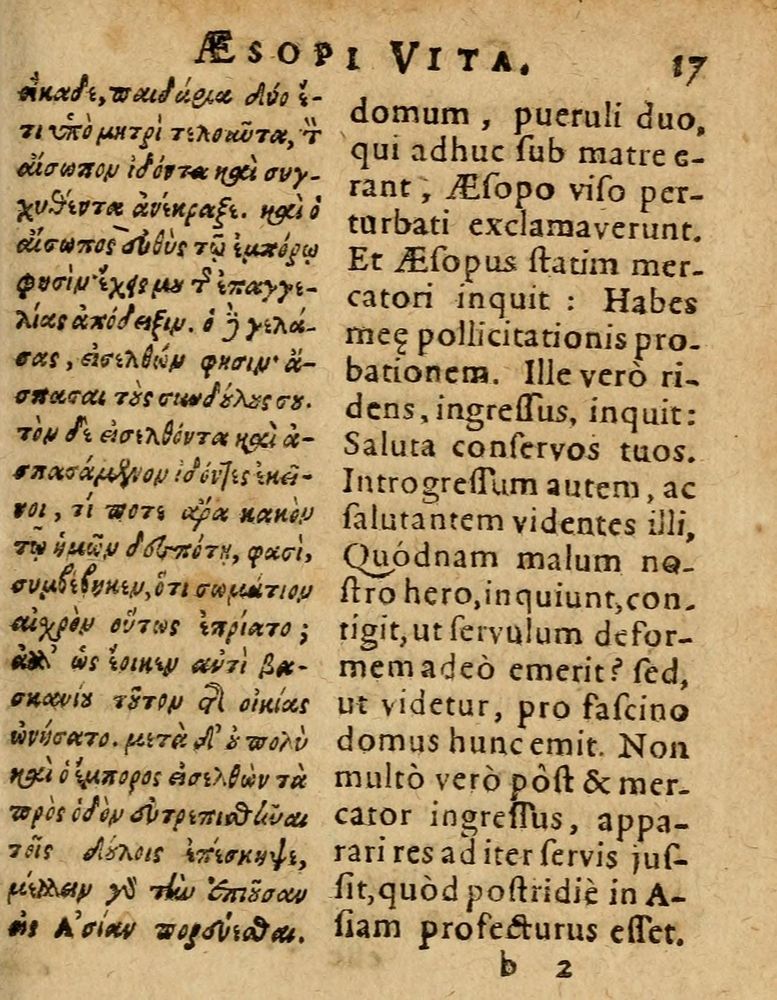 ÆSOPI VITA. 17
οἴκαδε, παιδάρια δύο ἔ-
τι ὑπὸ μητρὶ τελοῦντα, τὸν
αἴσωπον ἰδόντα καὶ συγ-
χυθέντα ἀνέκραξε. καὶ ὁ
αἴσωπος εὐθὺς τῷ ἐμπόρῳ
φησὶν· ἔχεις μου τῆς ἐπαγγε-
λίας ἀπόδειξιν. ὁ δὲ γελά-
σας, εἰσελθὼν φησιν· ἄ-
σπασαι τοὺς συνδούλους σου.
τὸν δὲ εἰσελθόντα καὶ ἀ-
σπασάμενον ἰδόντες ἐκεῖ-
νοι, τί ποτε ἄρα κακὸν
τῷ ἡμῶν δεσπότῃ, φασὶ,
συμβέβηκεν, ὅτι σωμάτιον
αἰσχρὸν οὕτως ἐπρίατο;
ἀλλ' ὡς ἔοικεν ἀντὶ βα-
σκανίου τοῦτον τῆς οἰκίας
ὠνήσατο. μετὰ δ' οὐ πολὺ
καὶ ὁ ἔμπορος εἰσελθὼν τὰ
πρὸς ὁδὸν εὐτρεπισθῆναι
τοῖς δούλοις ἐπέσκηψε,
μέλλειν γὰρ τὴν ἐπιοῦσαν
εἰς Ἀσίαν πορεύεσθαι.
domum, pueruli duo,
qui adhuc ſub matre e-
rant, Æſopo viſo per-
turbati exclamaverunt.
Et Æſopus ſtatim mer-
catori inquit : Habes
meę pollicitationis pro-
bationem. Ille verò ri-
dens, ingreſſus, inquit:
Saluta conſervos tuos.
Introgreſſum autem, ac
ſalutantem videntes illi,
Quódnam malum no-
ſtro hero, inquiunt, con-
tigit, ut ſervulum defor-
mem adeò emerit? ſed,
ut videtur, pro faſcino
domus hunc emit. Non
multò verò pòſt & mer-
cator ingreſſus, appa-
rari res ad iter ſervis juſ-
ſit, quòd poſtridiè in A-
ſiam profecturus eſſet.
b 2